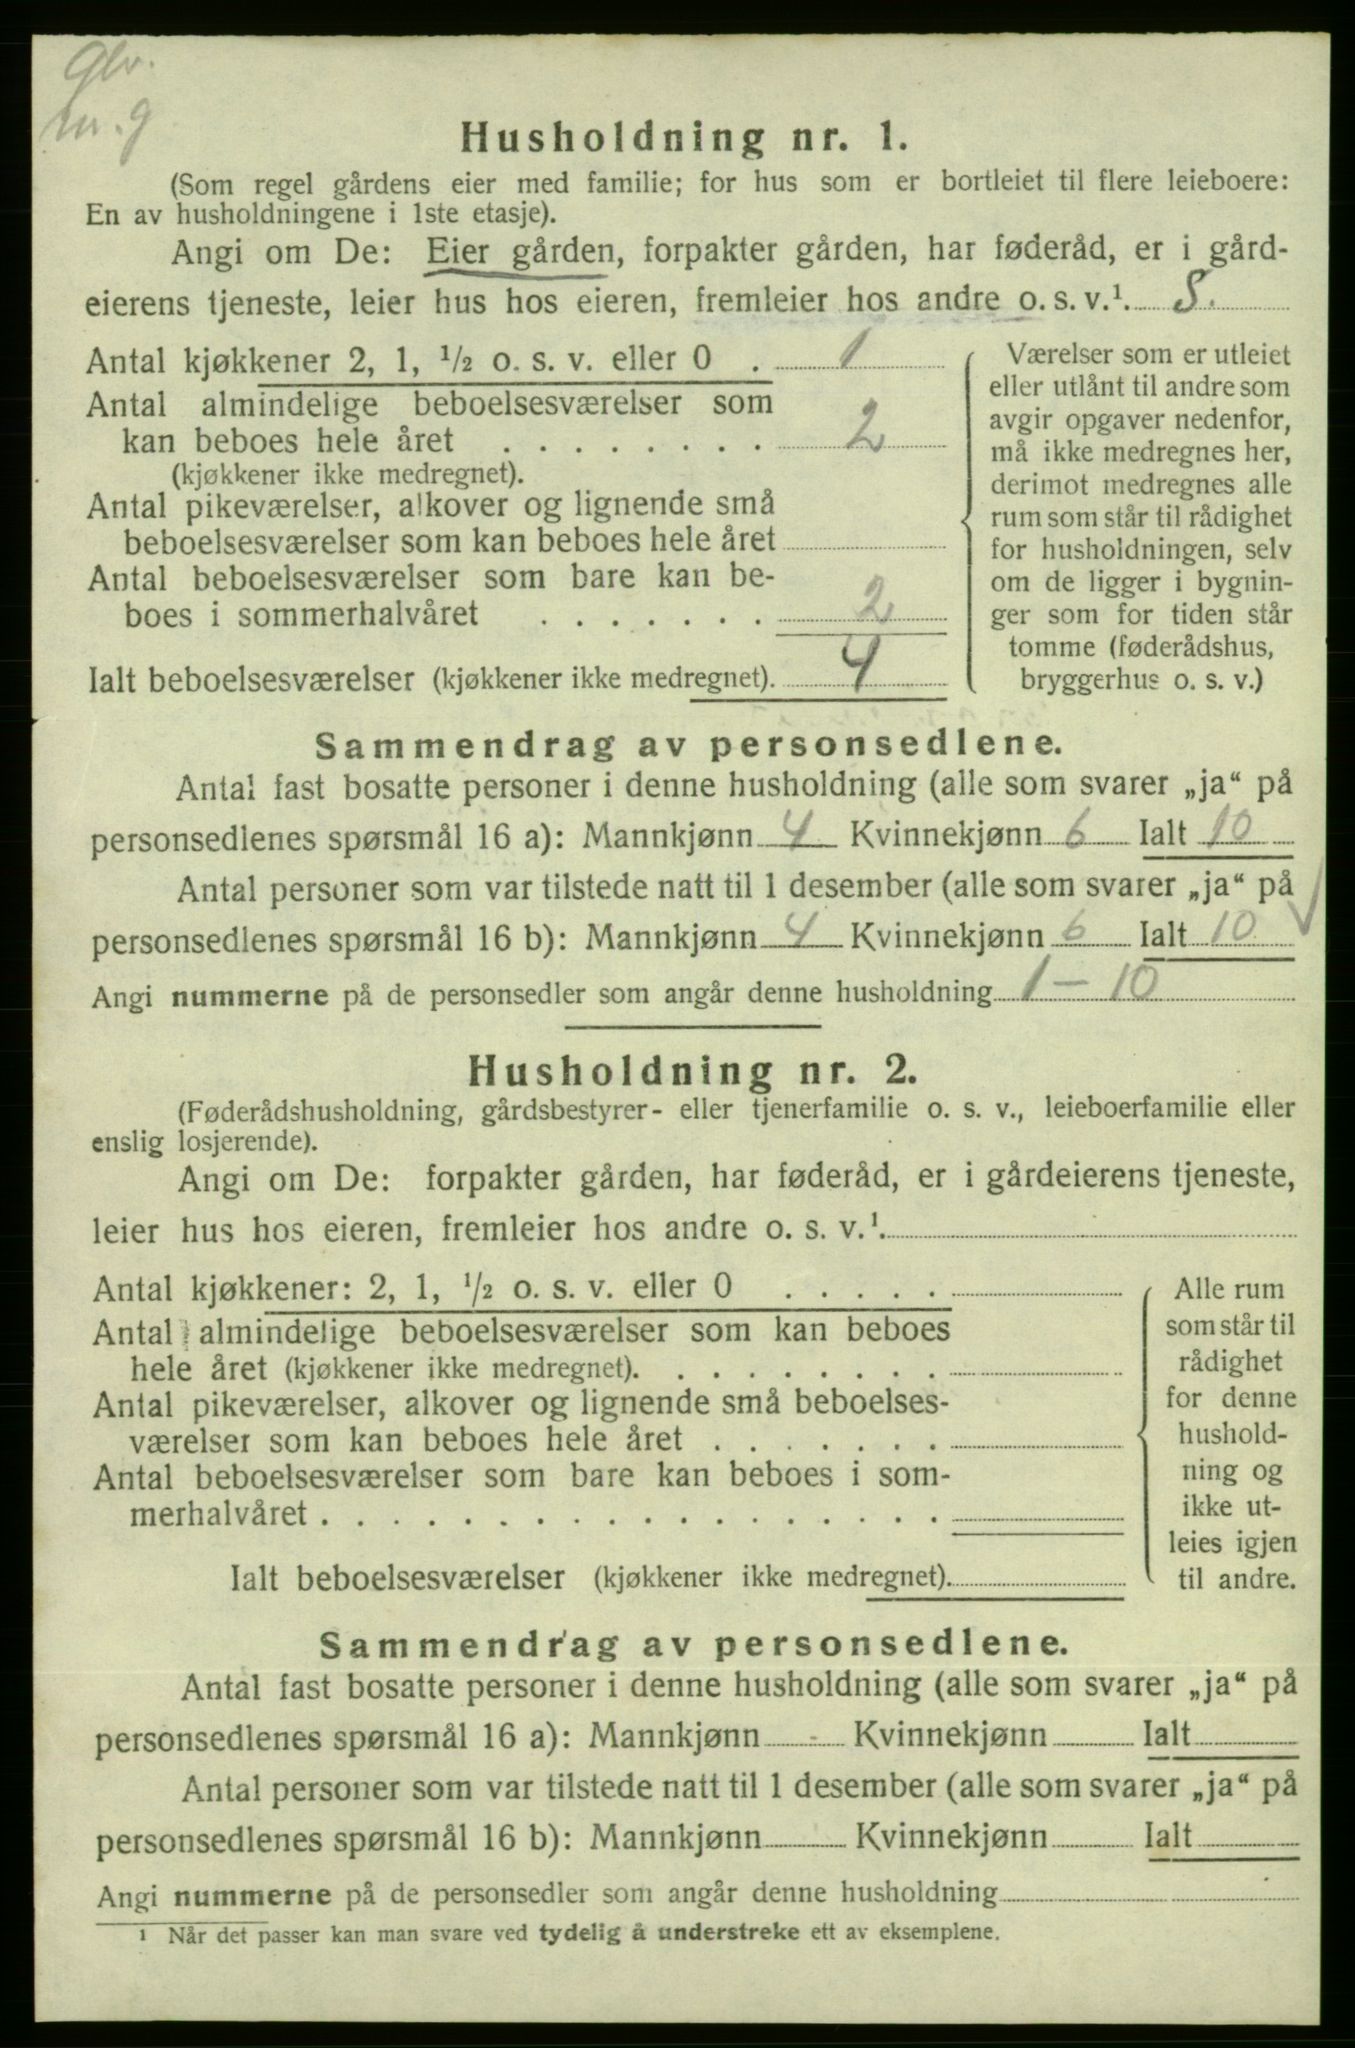 nr. 9
Husholdning nr. 1.
(Som regel gårdens eier med familie; for hus som er bortleiet til flere leieboere:
En av husholdningene i 1ste etasje).
Angi om De: Eier gården, forpakter gården, har føderåd, er i gård-
eierens tjeneste, leier hus hos eieren, fremleier hos andre o. s. v.¹. S.
Antal kjøkkener 2, 1, ½ o. s. v. eller 0 . 1
Antal almindelige beboelsesværelser som
kan beboes hele året . . . . . . . . 2
(kjøkkener ikke medregnet).
Antal pikeværelser, alkover og lignende små
beboelsesværelser som kan beboes hele året
Antal beboelsesværelser som bare kan be-
boes i sommerhalvåret . . . . . . . 2
Ialt beboelsesværelser (kjøkkener ikke medregnet). 4
Værelser som er utleiet
eller utlånt til andre som
avgir opgaver nedenfor,
må ikke medregnes her,
derimot medregnes alle
rum som står til rådighet
for husholdningen, selv
om de ligger i bygnin-
ger som for tiden står
tomme (føderådshus,
bryggerhus o. s. v.)
Sammendrag av personsedlene.
Antal fast bosatte personer i denne husholdning (alle som svarer „ja“ på
personsedlenes spørsmål 16 a): Mannkjønn 4 Kvinnekjønn 6 Ialt 10
Antal personer som var tilstede natt til 1 desember (alle som svarer „ja“ på
personsedlenes spørsmål 16 b): Mannkjønn 4 Kvinnekjønn 6 Ialt 10 ✓
Angi nummerne på de personsedler som angår denne husholdning 1 – 10
Husholdning nr. 2.
(Føderådshusholdning, gårdsbestyrer- eller tjenerfamilie o. s. v., leieboerfamilie eller
enslig losjerende).
Angi om De: forpakter gården, har føderåd, er i gårdeierens tjeneste,
leier hus hos eieren, fremleier hos andre o. s. v.¹.
Antal kjøkkener: 2, 1, ½ o. s. v. eller 0 . . . . .
Antal almindelige beboelsesværelser som kan beboes
hele året (kjøkkener ikke medregnet). . . . . . . . .
Antal pikeværelser, alkover og lignende små beboelses-
værelser som kan beboes hele året . . . . . . .
Antal beboelsesværelser som bare kan beboes i som-
merhalvåret . . . . . . . . . . . . . . . . . .
Ialt beboelsesværelser (kjøkkener ikke medregnet).
Alle rum
som står til
rådighet
for denne
hushold-
ning og
ikke ut-
leies igjen
til andre.
Sammendrag av personsedlene.
Antal fast bosatte personer i denne husholdning (alle som svarer „ja“ på
personsedlenes spørsmål 16 a): Mannkjønn Kvinnekjønn Ialt
Antal personer som var tilstede natt til 1 desember (alle som svarer „ja“ på
personsedlenes spørsmål 16 b): Mannkjønn Kvinnekjønn Ialt
Angi nummerne på de personsedler som angår denne husholdning
¹ Når det passer kan man svare ved tydelig å understreke ett av eksemplene.